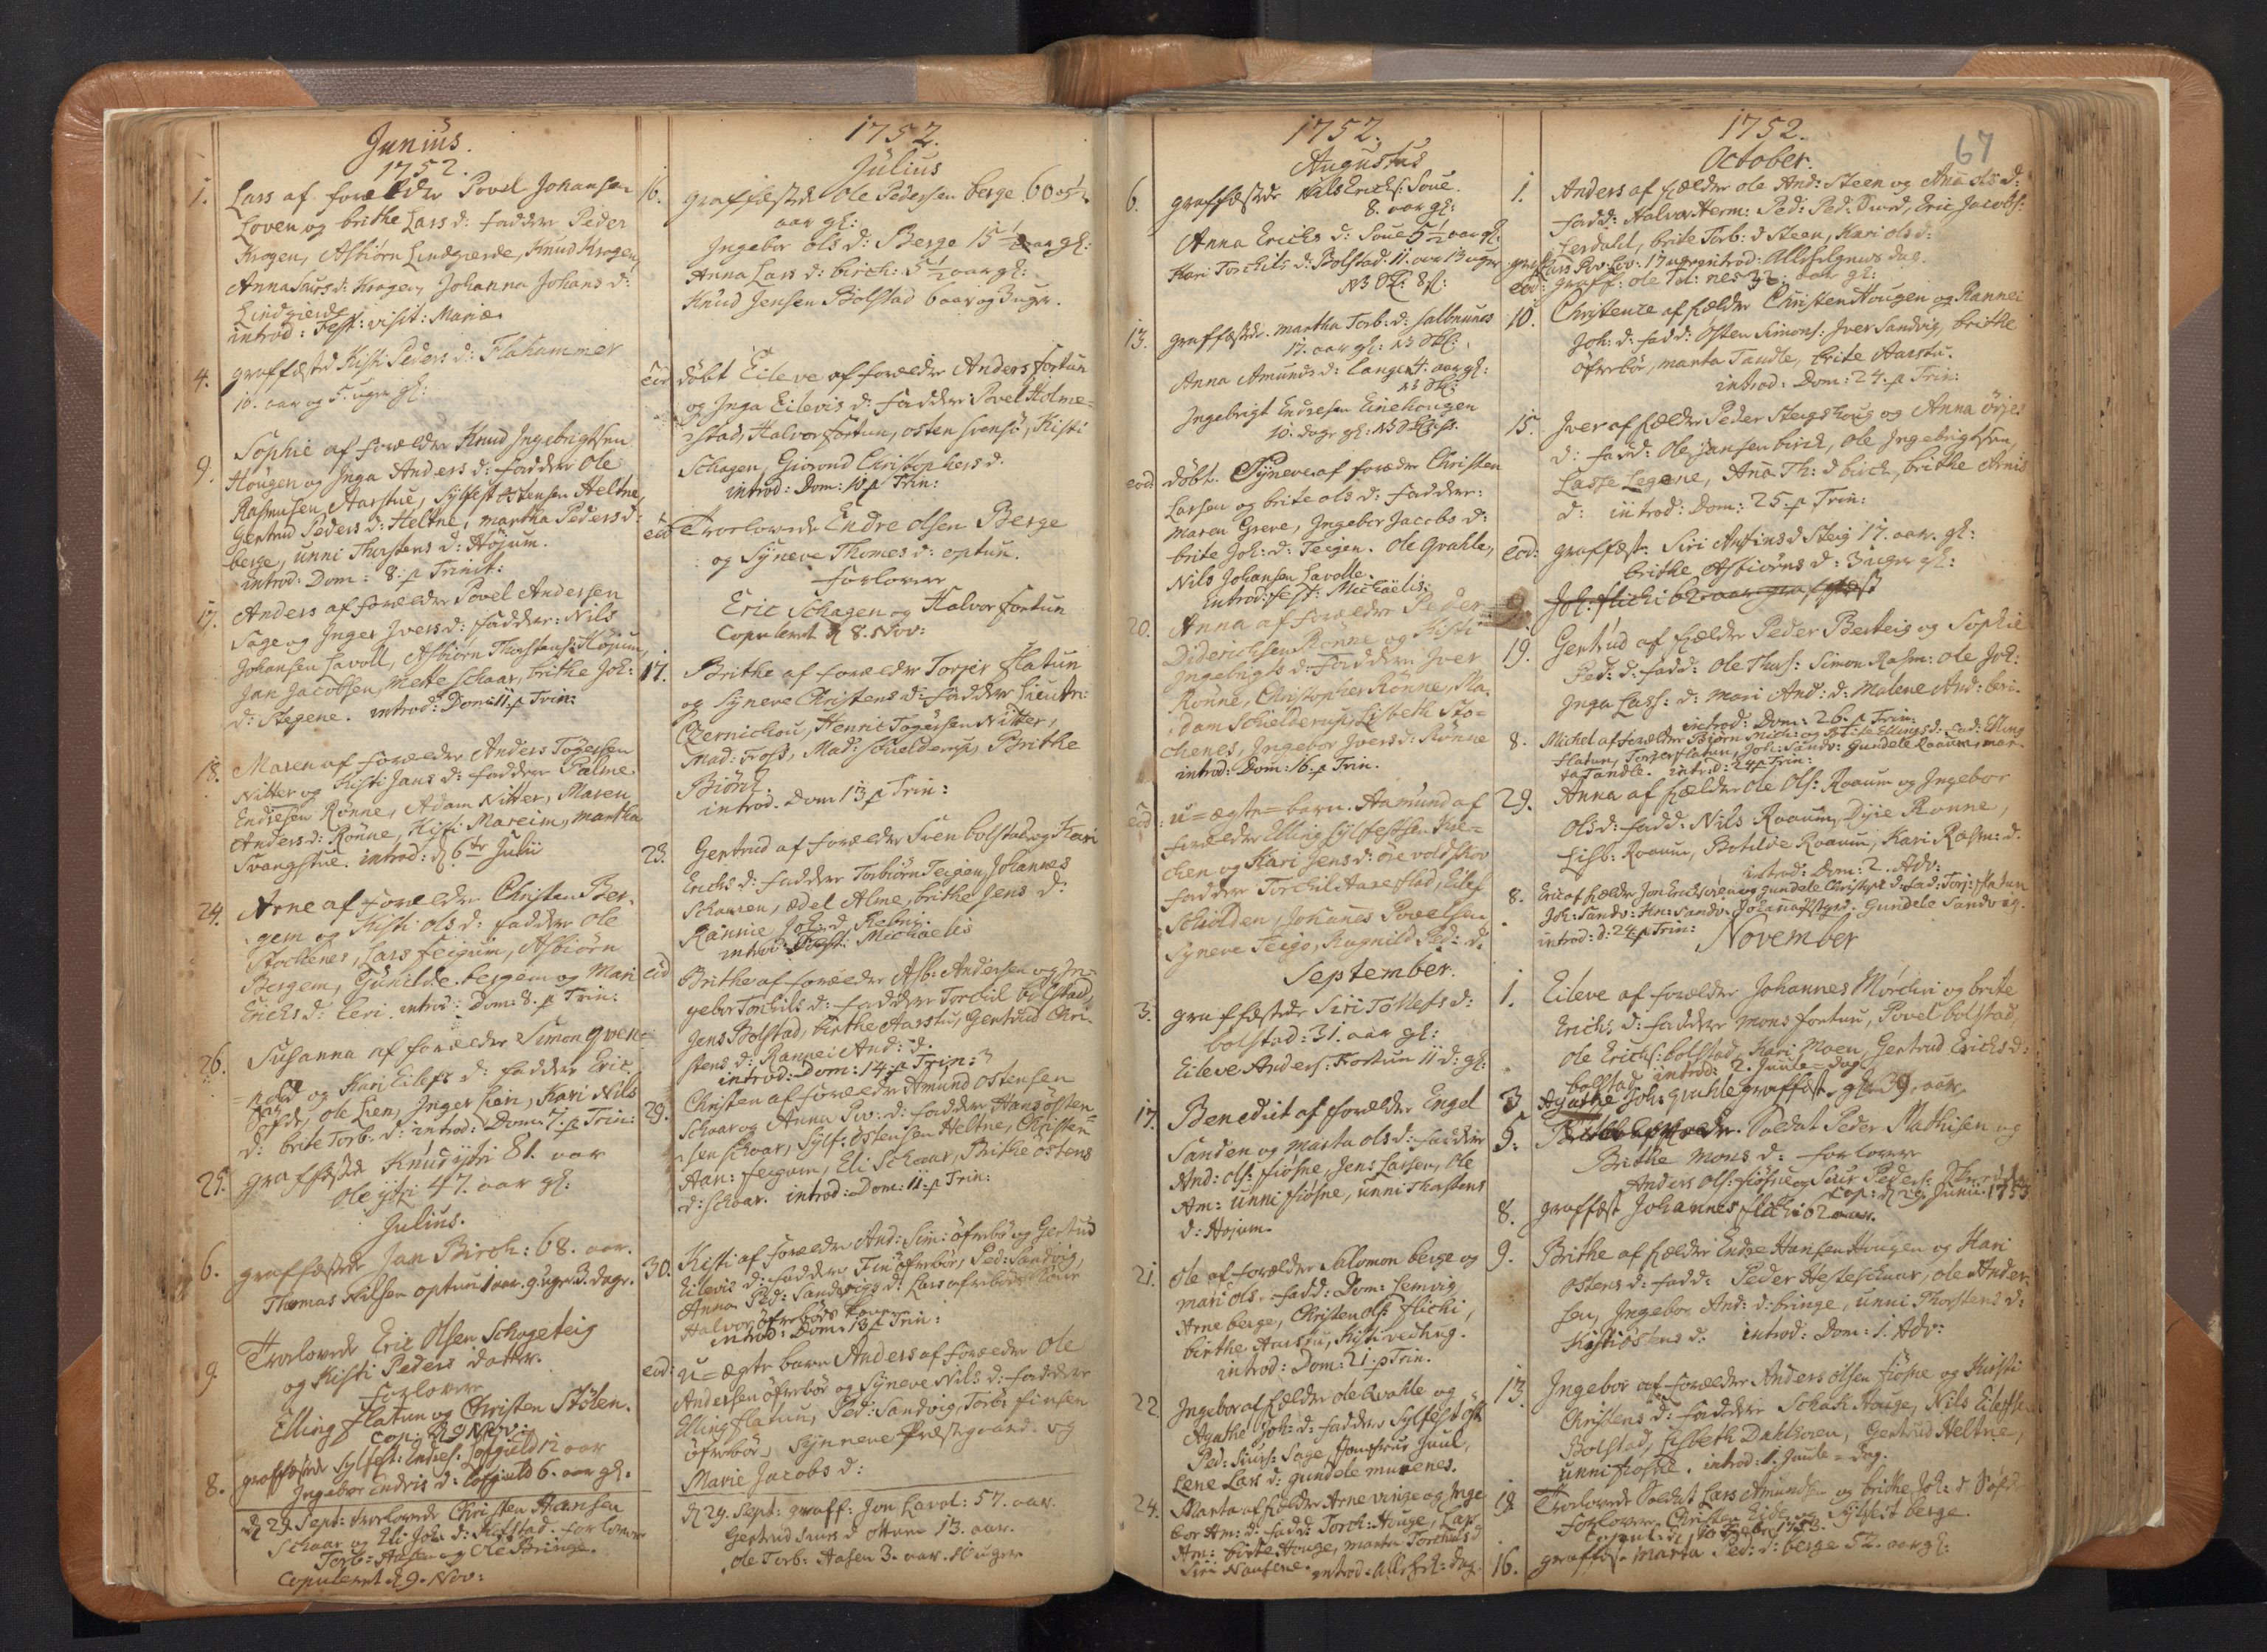 Junius.
1752.
1. Lars af forældre Povel Johansen
Loven og brithe Lars d: faddre Peder
Krogen, Asbiörn Lindgierde, Knud Krogen,
Anna Siurs d: Krogen, Johanna Johans d:
Lindgierde
introd: Fest: visit: Mariæ
4. graffæsted Kisti Peders d: Flahammer
10. aar og 5. uger gl:
9. Sophie af forældre Knud Ingebrigtsen
Hougen og Inga Anders d: faddre Ole
Rasmusen Aarstue, Sylfest Ostensen Heltne,
Gertrud Peders d: Heltne, martha Peders d:
berge, unni Thorstens d: Höjum.
introd: Dom: 8. p Trinit:
17. Anders af forældre Povel Andersen
Sage og Inger Ivers d: faddre: Nils
Johansen Lavoll, Asbiörn Thorstens: Höjum,
Jan Jacobsen, Mette Schaar, brithe Joh:
d: Stegene. introd: Dom: 11. p Trin:
18. Maren af forældre Anders Tögersen
Nitter og Kisti Jans d: faddre Palme
Endresen Rönne, Adam Nitter, Maren
Anders d: Rönne, Kisti Mareim, martha
Svangstue. introd: d 6te Julii
24. Arne af forældre Christen Ber-
gem og Kisti ols d: faddre ole
Stochenes, Lars feigum, Asbiörn
Bergem, Gunilde bergem og Mari
Erichs d: Eeri. introd: Dom: 8. p Trin:
26. Susanna af forældre Simon Qven-
og Kari Eilefs d: faddre Eric
ole Lien, Inger Lien, Kari Nils
d: brite Torb: d: introd: Dom: 7. p Trin:
29. graffæstede Knud ijtri 81. aar
ole ijtri 47. aar gl:
Julius.
6. graffæstede Jan Birch: 68. aar.
Thomas Nilsen optun 1 aar. 9. uger 3. dage.
9. Trorlovede Eric Olsen Schageteig
og Kisti Peders datter.
forlovere
Elling flatun og Christen Stölen.
Cop: d 9 Nov:
8. graffæstede Sylfest: Endres: Lofgield 12 aar
Ingebor Endris d: Lofgield 6. aar gl:
d 29. Sept: trorlovede Christen Hansen
Schaar og Eli Joh: d: Kilstad. forlovere
Torb: Aasen og Ole Bringe.
Copuleret d 9. Nov:
1752.
Julius
16. graffæstede Ole Pedersen berge 60
aar gl:
Ingebor ols d: Berge 15 1/2 aar gl:
Anna Lars d: birch: 5 1/2 aar gl:
Knud Jensen Bolstad 6 aar og 3 ugr.
eod döbt Eileve af forældre Anders fortun
og Inga Eilevis d: faddre Povel Holme-
stad, Halvor fortun, osten svensö, Kisti
Schagen, Giörond Christophers d.
introd: Dom: 10 p Trin:
eod Trorlovede Endre olsen Berge
og Syneve Thomes d: optun.
forlovere
Eric Schagen og Halvor fortun
Copuleret d 8. Nov:
17. Brithe af forældre Torgir flatun
og Syneve Christens d: faddre Lieutn:
Czernichou, Hennic Tögersen Nitter,
Mad: Fross, Mad: Schielderup, Brithe
Biörk.
introd. Dom 13 p Trin:
23. Gertrud af forældre Sven bolstad og Kari
Erichs d: faddre Torbiörn Teigen, Johannes
Schauren, Edel Alme, brithe Jens d:
Rannie Joh: d
introd: Fest: Michaelis
eod Brithe af forældre Asb: Andersen og In-
gebor Torchils d: faddre Torchil bolstad,
Jens Bolstad, birthe Aarstu, Gertrud Chri-
stens d: Rannei And: d.
introd: Dom: 14. p Trin:
29. Christen af forældre Amund ostensen
Schaar og Anna Siv: d: faddre Hans osten-
sen schaar, Sylf: ostensen Heltne, Christen
Aan: feigum, Eli Schaar, Brithe ostens
d: schaar. introd: Dom: 11. p Trin:
30. Kisti af forældre And: Sim: öfrebö og Gertrud
Eilevis d: faddre Fin öfrebör, Ped: Sandvig,
Anna Ped: Sandvigs d: Lars öfrebörs Kone
Halvor öfrebörs Kone
introd: Dom: 13 p Trin:
eod: u=ægte barn Anders af forældre Ole
Andersen öfrebör og Syneve Nils d: faddre
Elling flatun, Ped: Sandvig, Torb: finsen
öfrebör, Synneve Præstgaard. og
Marie Jacobs d:
d 29. Sept: graff: Jon Lavol: 57. aar.
Gertrud Siurs d ottum 13. aar.
ole Torb: Aasen 3. aar. 10 uger
1752.
Augustus
6. graffæstede Nils Erichs: Soue.
8. aar gl:
Anna Erichs d: Soue 5 1/2 aar gl:
Kari Torchils d: Bolstad: 11. aar 13 uger
13. graffæstede. martha Torb: d:
17. aar gl:
Anna Amunds d: Langen 4. aar gl:
Ingebrigt Endresen Einehougen
10. dage gl:
eod döbt. Syneve af forældre Christen
Larsen og brite ols d: faddre:
Maren Greve, Ingebor Jacobs d:
brite Joh: d: Teigen. Ole Qvahle,
Nils Johansen Lavolle.
introd: fest: Michaelis:
20. Anna af forældre Peder
Diderichsen Rönne og Kisti
Ingebrigts d: faddre: Iver
Rönne, Christopher Rönne, Ma-
dam Schielderup, Lisbeth Sto-
chenes, Ingebor Ivers d: Rönne
introd: Dom: 16. p Trin.
eod: u=ægte=barn. Aamund af
forældre Elling Sylfestsen Kro-
chen og Kari Jens d:
faddre Torchil Aarestad, Eilef
Schilden, Johannes Povelsen
Syneve Teigo, Rugnild Ped: d.
September.
3. graffæstede Siri Tollefs d:
bolstad: 31. aar gl:
Eileve Anders: Fortun 11 d: gl:
17. Benedict af forældre Engel
Sanden og Marta ols d: faddre
And: ols: fiösne, Jens Larsen, Ole
Am: unni fiösne, unni Thorstens
d: Höjum.
21. ole af forældre Salomon berge og
mari ols. fadd: Dom: Lemvig
Arne berge, Christen ols: flichi,
birthe Aarstu, Kisti
introd: Dom: 21. p Trin.
22 Ingebor af fældre ole Qvahle og
Agathe Joh: d: faddre Sylfest ols
Ped: Siurs: Sage, Jomfrue Juul,
Lene Lars d: gundele
24. Marta af fældre Arne vinge og Inge-
bor Am: d: fadd: Torch: Houge, Lar.
Am: birte Houge, marta Torchils d
Siri introd: Alle Hel: dag.
1752.
67
October.
1. Anders af fældre ole And: Steen og Ana ols d:
fadd: Halvor Herm: Ped: Ped: Eric Jacobs:
Lerdahl, brite Torb: d Steen, Kari ols d:
introd: Allehelgens dag.
eod: graff: ole aar gl:
10. Christense af fældre Christen Hougen og Rannei
Joh: d: fadd: Osten Simons: Iver Sandvig, brithe
öfrebör, marta Tandle, brite Aarstu.
introd: Dom: 24. p Trin:
15. Iver af fældre Peder Steigshoug og Anna
d: fadd: Ole Jansen birch, ole Ingebrigtsen,
Lasse Legene, Ana Th: d birch, brithe Arnis
d: introd: Dom: 25. p Trin:
eod: graffæst. Siri Anfins d Steig 17. aar. gl:
brithe Asbiörns d: 3 uger gl:
9. Joh: flichi 62 aar graffæst
19. Gertrud af fældre Peder Bersteig og Sophie
Ped: d: fadd: ole Thos: Simon Rasm: ole Joh:
Inga Lass: d: Mari And: d: Malene And:
introd: Dom: 26. p Trin:
8. Michel af forældre Biörn Mich: og Ellings d: fad: Elling
flatun, Torger flatun, Joh: Sandv: Gundele Roaum, mar-
ta Tandle. introd: 24 p Trin:
29. Anna af fældre ole Ols: Roaum og Ingebor
Ols d: fadd: Nils Roaum, Dyre Rönne,
Lisb: Roaum, Botilde Roaum, Kari Rasm: d.
introd: Dom: 2. Adv:
8. Eric af fældre Jon Erichsen og gundele Christ: d: fad: Torj: flatun
Joh: Sandv: Kn: Sandv: Johana Gundele Sandvig.
introd: d: 24 p Trin:
November
1. Eileve af forældre Johannes Mörchri og brite
Erichs d: faddre Mons fortun, Povel bolstad,
ole Erichs: bolstad, Kari Moen, Gertrud Erichs d:
bolstad introd: 2. Juule=dag
3 Agathe Joh: qvahle graffæst. gl: 39. aar.
5. Soldat Peder Mathisen og
Brithe Mons d: forlovere
Anders Ols: fiösne og Siur Peders:
Cop: d 29. Junii. 1753
8. graffæst Johannes flichi 62 aar.
9. Brithe af fældre Endre Hansen Hougen og Kari
ostens d: fadd: Peder Hesteschaar, ole Ander-
sen, Ingebor And: d: bringe, unni Thorstens d:
Kisti ostens d: introd: Dom: 1. Adv:
13. Ingebor af forældre Anders olsen fiösne og Kirsti
Christens d: faddre Schack Houge, Nils Eilefsen
Bolstad, Lisbeth Dahlsören, Gertrud Heltne,
unni fiösne. introd: 1. Juule=dag.
19. Trorlovede Soldat Lars Amundsen og brithe Joh: d
forlovere Christen Eide og Sylfest berge.
16. graffæst. Marta Ped: d: berge 52. aar gl: